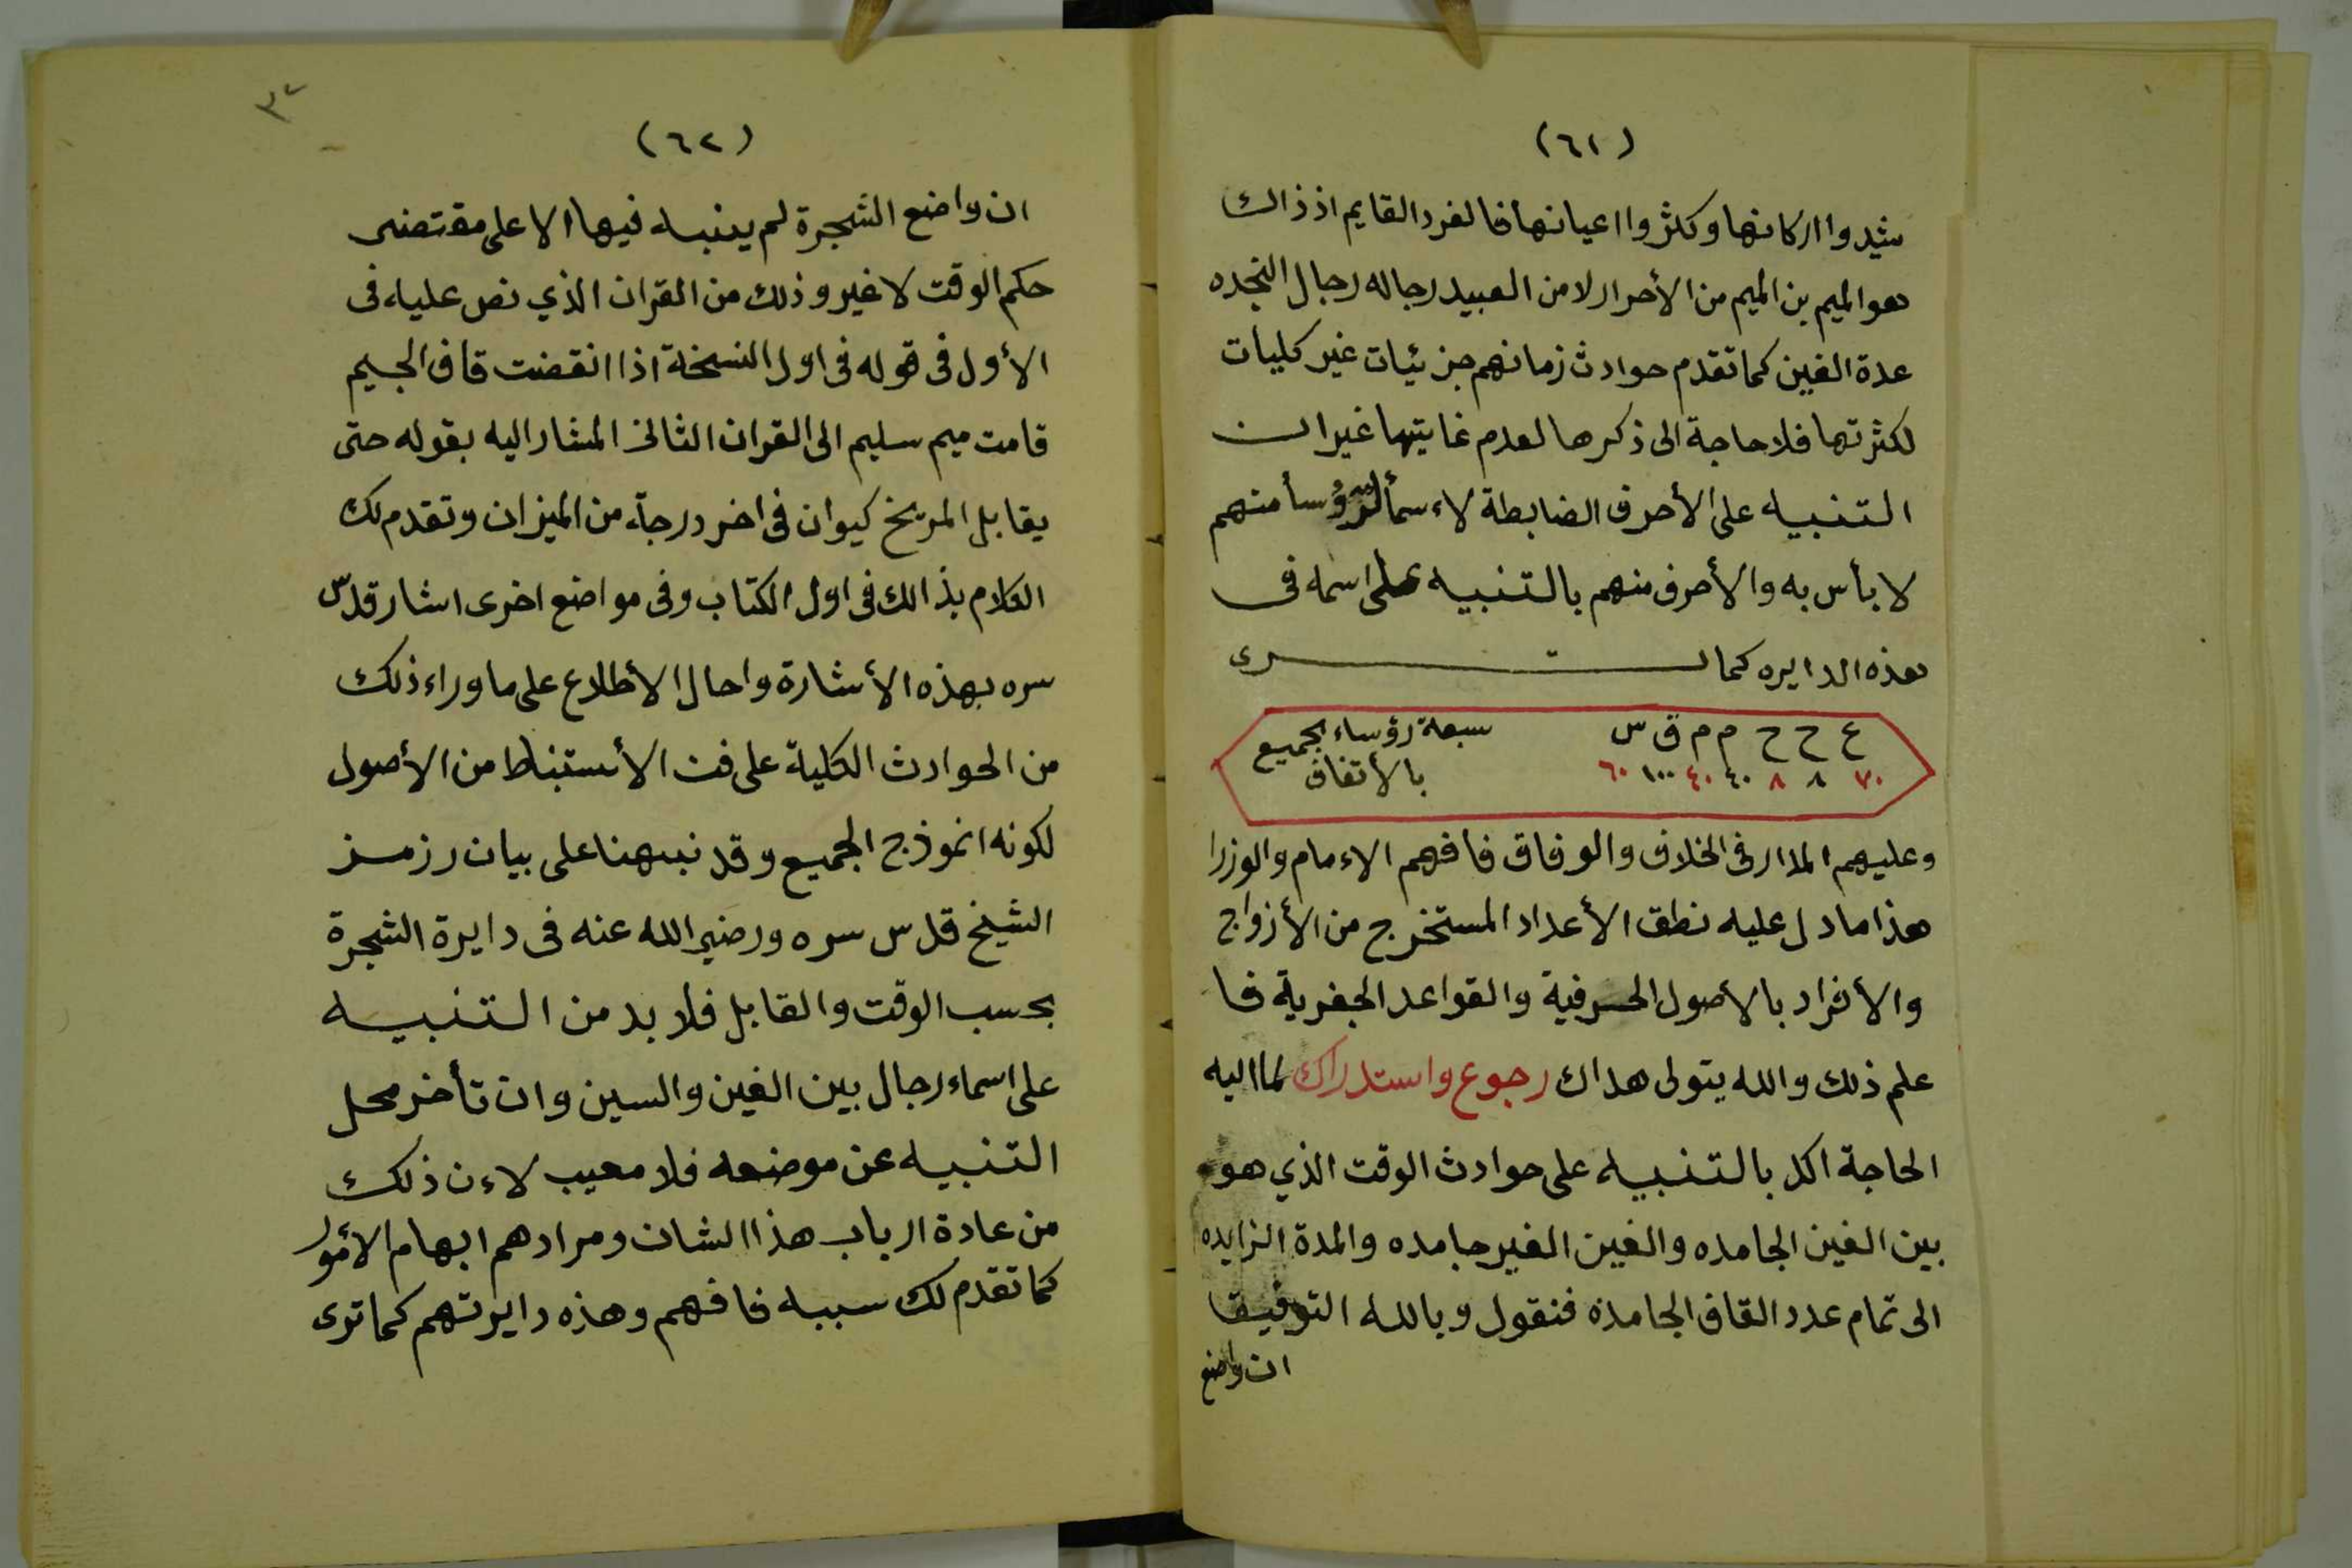 (٦١)
شيدوا اركانها وكثروا اعيانها فالفرد القايم اذ ذاك
هو الميم بن الميم من الأحرار لا من العبيد رجاله رجال النجده
عدة الغين كما تقدم حوادث زمانهم جزئيات غير كليات
لكثرتها فلا حاجة الى ذكرها لعدم غايتها غير ان
التنبيه على الأحرف الضابطة لاءسمأ لرؤسأ منهم
لا بأس به والأحرف منهم بالتنبيه على اسمه فى
هذه الدايره كما ترى
ع ح ح م م ق س سبعة رؤساء بجميع
٧٠ ٨ ٨ ٤٠ ٤٠ ١٠٠ ٦٠ بالأتفاق
وعليهم المدار فى الخلاف والوفاق فافهم الاءمام والوزرا
هذا ما دل عليه نطق الأعداد المستخرج من الأزواج
والأفراد بالأصول الحرفية والقواعد الجفرية فا
علم ذلك والله يتولى هداك رجوع واستدراك لما اليه
الحاجة اكد بالتنبيه على حوادث الوقت الذي هو
بين الغين الجامده والغين الغير جامده والمدة الزايده
الى تمام عدد القاف الجامده فنقول وبالله التوفيقا
ان واضع
٣٢
(٦٢)
ان واضع الشجرة لم ينبه فيها الا على مقتضى
حكم الوقت لا غير وذلك من القران الذي نص عليه فى
الأول فى قوله فى اول النسخة اذا انقضت قاف الجيم
قامت ميم سليم الى القران الثانى المشار اليه بقوله حتى
يقابل المريخ كيوان فى اخر درجة من الميزان وتقدم لك
الكلام بذالك فى اول الكتاب وفى مواضع اخرى اشار قدس
سره بهذه الأشارة واحال الأطلاع على ما وراء ذلك
من الحوادث الكلية على فن الأستنباط من الأصول
لكونه انموذج الجميع وقد نبهنا على بيان رزمز
الشيخ قدس سره ورضي الله عنه فى دايرة الشجرة
بحسب الوقت والقابل فلا بد من التنبيه
على اسماء رجال بين الغين والسين وان تأخر محل
التنبيه عن موضعه فلا معيب لاءن ذلك
من عادة ارباب هذا الشان ومرادهم ابهام الأمور
كما تقدم لك سببه فافهم وهذه دايرتهم كما ترى